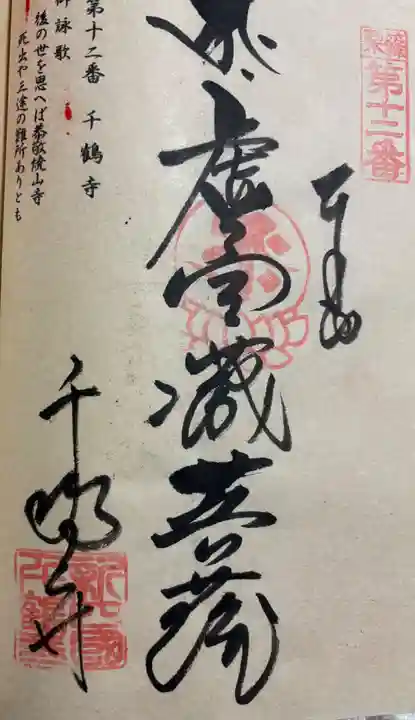 第十二番
奉拝
虚空蔵菩薩
千鶴寺
第十二番　千鶴寺
御詠歌
後の世を思へば恭敬焼山寺
死出や三途の難所ありとも